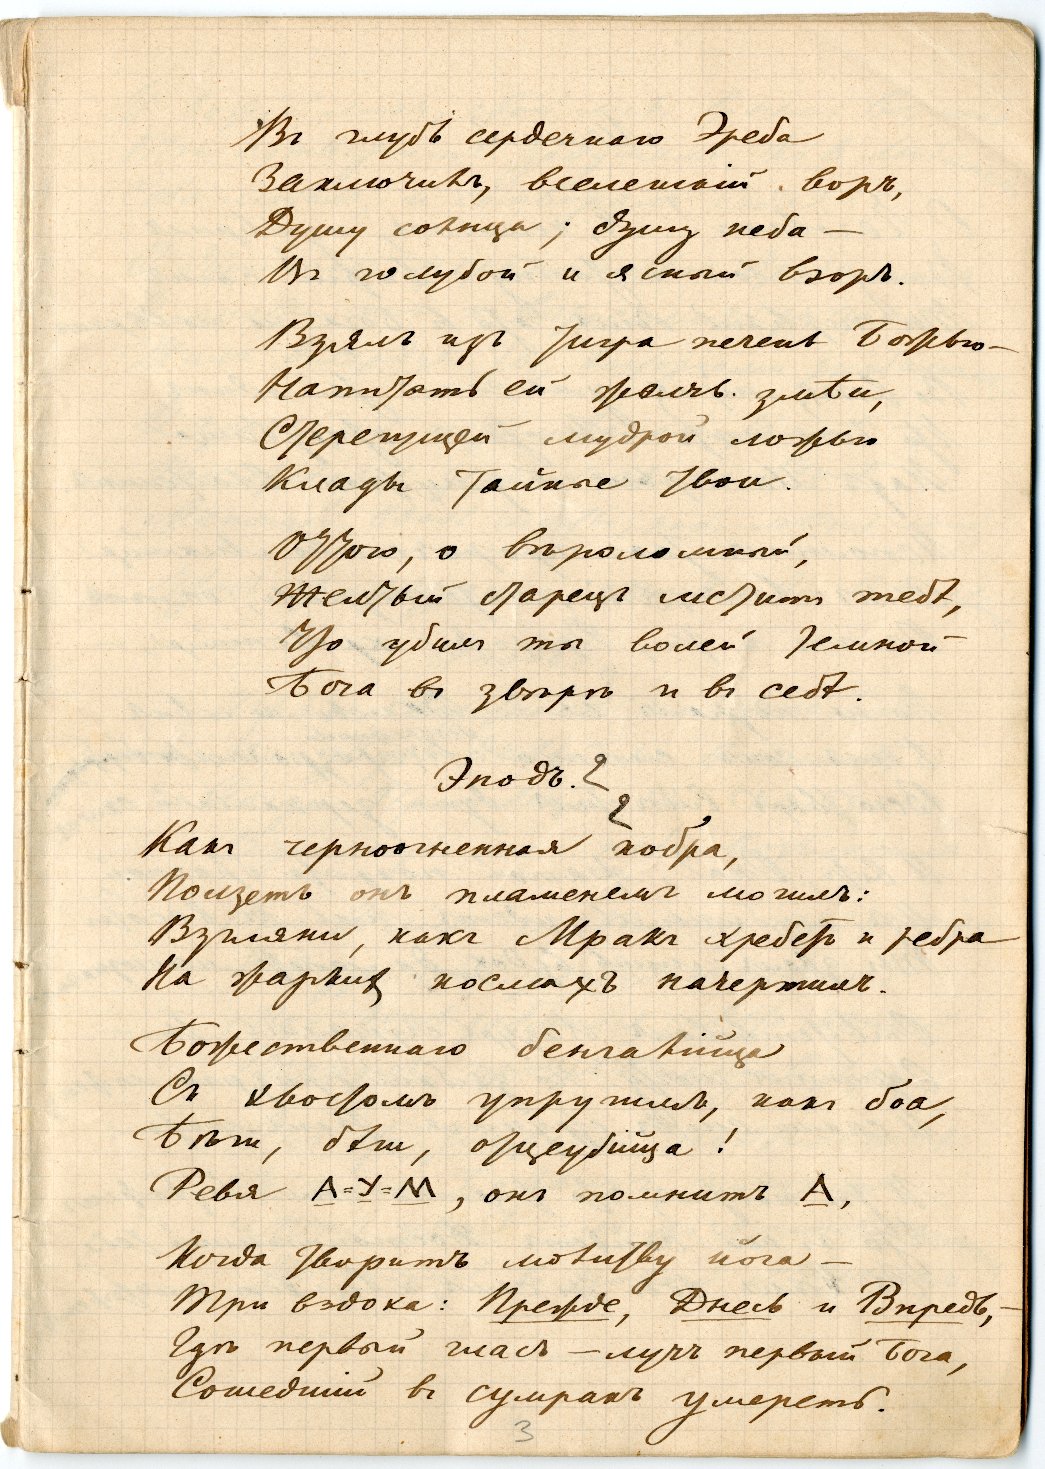 Въ глубь сердечнаго Эреба
Заключить, вселенскій воръ,
Душу солнца; душу неба —
Въ голубой и ясный взоръ.
Взялъ изъ тигра печень Божью —
Напитать ей желчь змѣи,
Стерегущей мудрой ложью
Клады тайные твои.
Оттого, о вѣроломный,
Желтый старецъ мститъ тебѣ,
Что убилъ ты волей темной
Бога въ звѣрѣ и въ себѣ.
Эподъ.
Какъ черноогненная кобра,
Ползетъ онъ пламенемъ могилъ:
Взгляни, какъ Мракъ хребетъ и ребра
На жаркихъ космахъ начертилъ.
Божественнаго бенгалійца
Съ хвостомъ упругимъ, какъ боа,
Бѣги, бѣги, отцеубійца!
Ревя А=У=М, онъ помнитъ А,
Когда творитъ молитву йога —
Три вздоха: Прежде, Днесь и Впредь, —
Гдѣ первый гласъ — лучъ первый Бога,
Сошедшій въ сумракъ умереть.
3